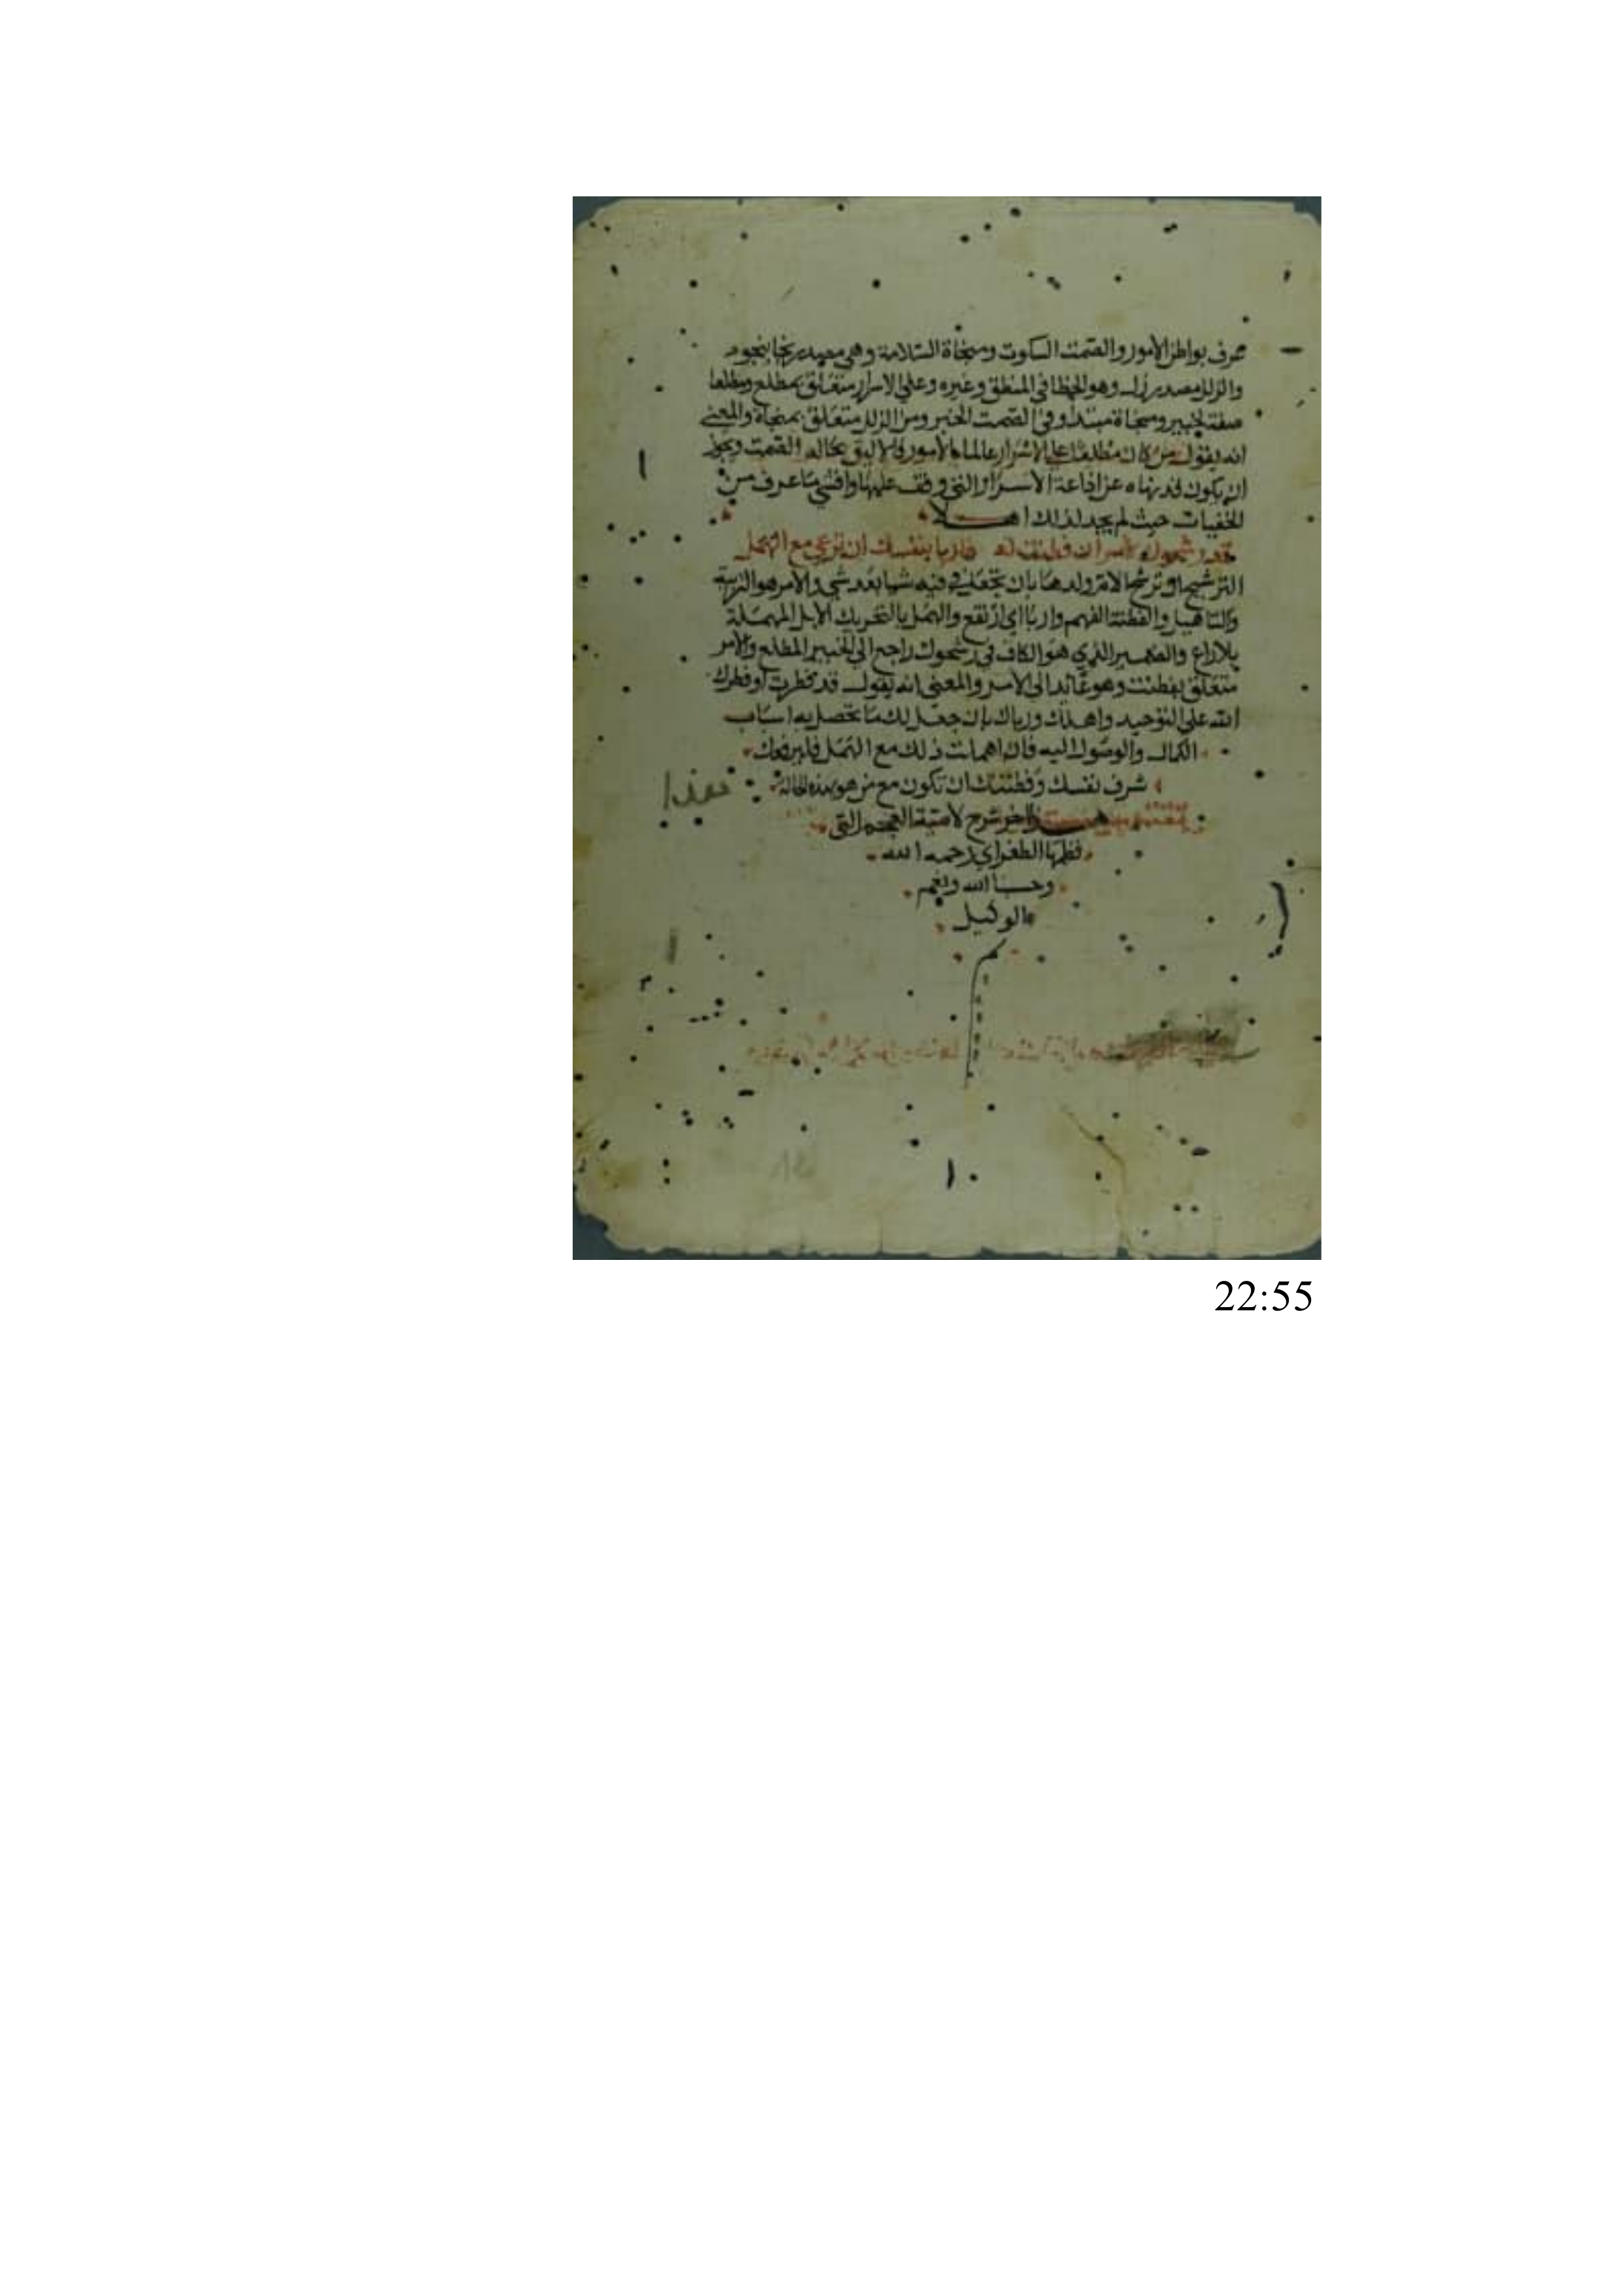 عرف بواطن الامور والصمت السكوت ومنجاة السلامة وهي مصدر نجا ينجو
والزلل مصدر زل وهو الخطا في المنطق وغيره وعلي الاسرار متعلق بمطلع ومطلعا
صفة لخبير ومنجاة مبتدا وفي الصمت الخبر ومن الزلل متعلق بمنجاة والمعني
انه يقول من كان مطلعا علي الاسرار عالما بالامور فالاليق بحاله الصمت ويجوز
ان يكون قد نهاه عن اذاعة الاسرار التي وقف عليها وافشي ما عرف من
الخفيات حيث لم يجد لذلك اهلا
قد رشحوك لامر ان فطنت له فاربا بنفسك ان ترعي مع الهمل
الترشيح ترشح الام ولدها بان تجعل في فيه شيا بعد شي والامر هو التربية
والتاهيل والفطنة الفهم واربا اي ارتفع والهمل بالتحريك الابل المهملة
بلا راع والضمير الذي هو الكاف في رشحوك راجع الي الخبير المطلع والامر
متعلق بفطنت وهو عائد الي الامر والمعني انه يقول قد فطرت او فطرك
الله علي التوحيد واهلك ورباك بان جعل لك ما تحصل به اسباب
الكمال والوصول اليه فان اهملت ذلك مع الهمل فليرفعك
شرف نفسك وفطنتك ان تكون مع من هو بهذه الحالة
هذا اخر شرح لامية العجم التي
نظمها الطغراي رحمه الله
وحسبنا الله ونعم
الوكيل
22:55